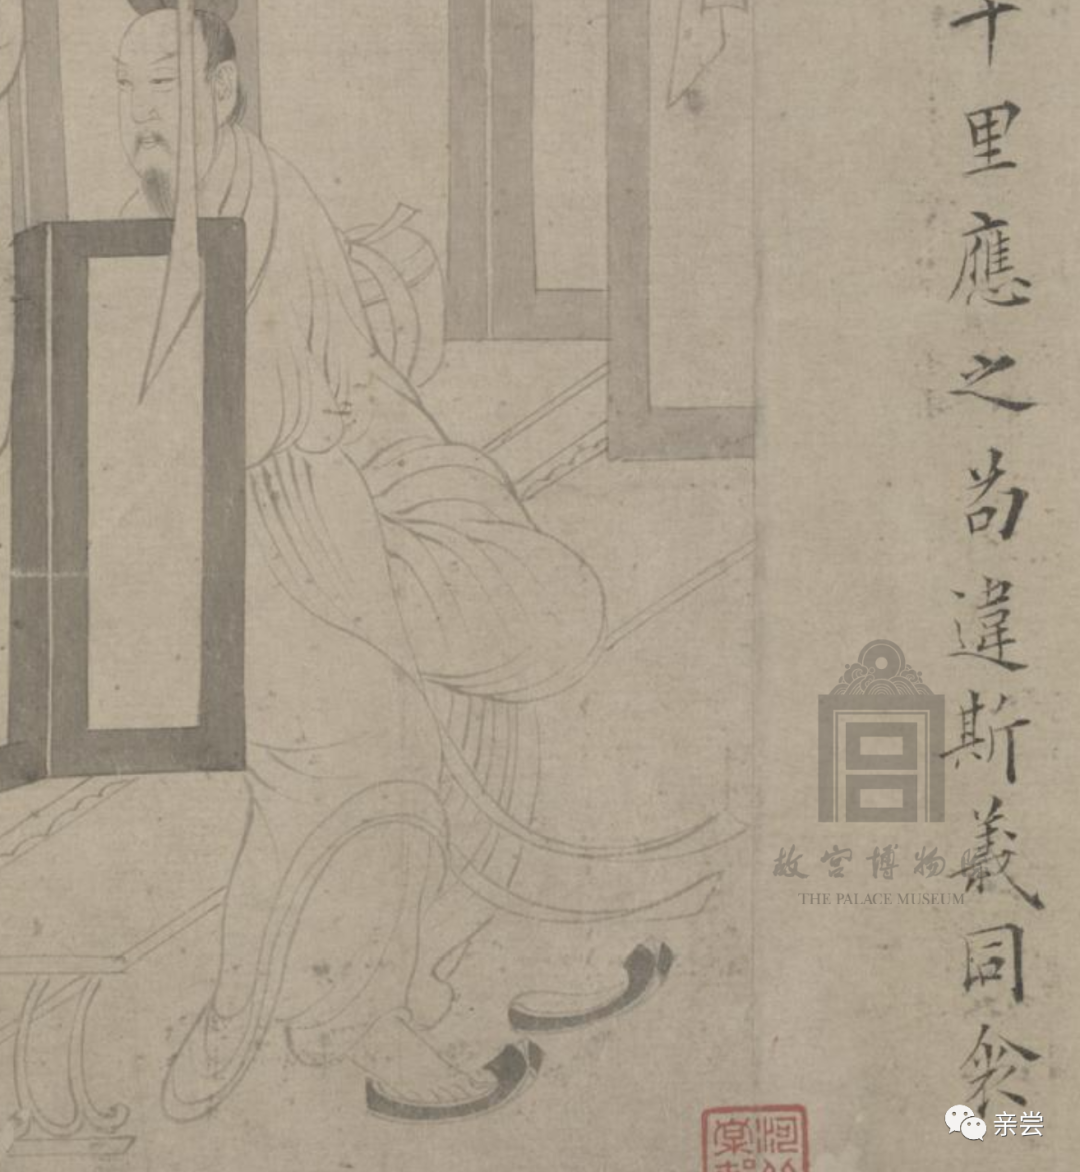 千里應之苟違斯義同衾
故宫博物院
THE PALACE MUSEUM
亲尝